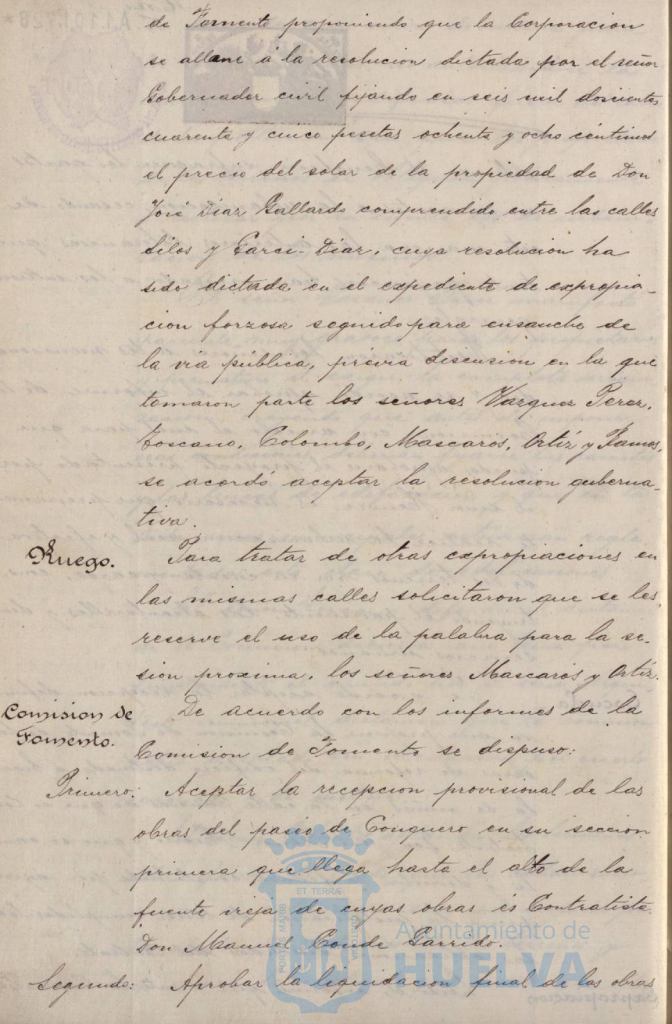 de Fomento proponiendo que la Corporacion
se allane á la resolucion dictada por el señor
Gobernador civil fijando en seis mil doscientas
cuarenta y cinco pesetas ochenta y ocho céntimos
el precio del solar de la propiedad de Don
José Diaz Gallardo comprendido entre las calles
Silos y Garci-Diaz, cuya resolucion ha
sido dictada en el expediente de expropia-
cion forzosa seguido para ensanche de
la via pública, prévia discusion en la que
tomaron parte los señores Vazquez Perez,
Toscano, Colombo, Mascarós, Ortíz y Ramos,
se acordó aceptar la resolucion guberna-
tiva.
Ruego. Para tratar de otras expropiaciones en
las mismas calles solicitaron que se les
reserve el uso de la palabra para la se-
sion proxima, los señores Mascarós y Ortíz.
Comision de Fomento. De acuerdo con los informes de la
Comision de Fomento se dispuso:
Primero: Aceptar la recepcion provisional de las
obras del paseo de Conquero en su seccion
primera que llega hasta el alto de la
fuente vieja de cuyas obras és Contratista
Don Manuel Conde Garrido.
Segundo: Aprobar la liquidacion final de las obras
ET TERRÆ
PORTUS MARIS
Ayuntamiento de
HUELVA